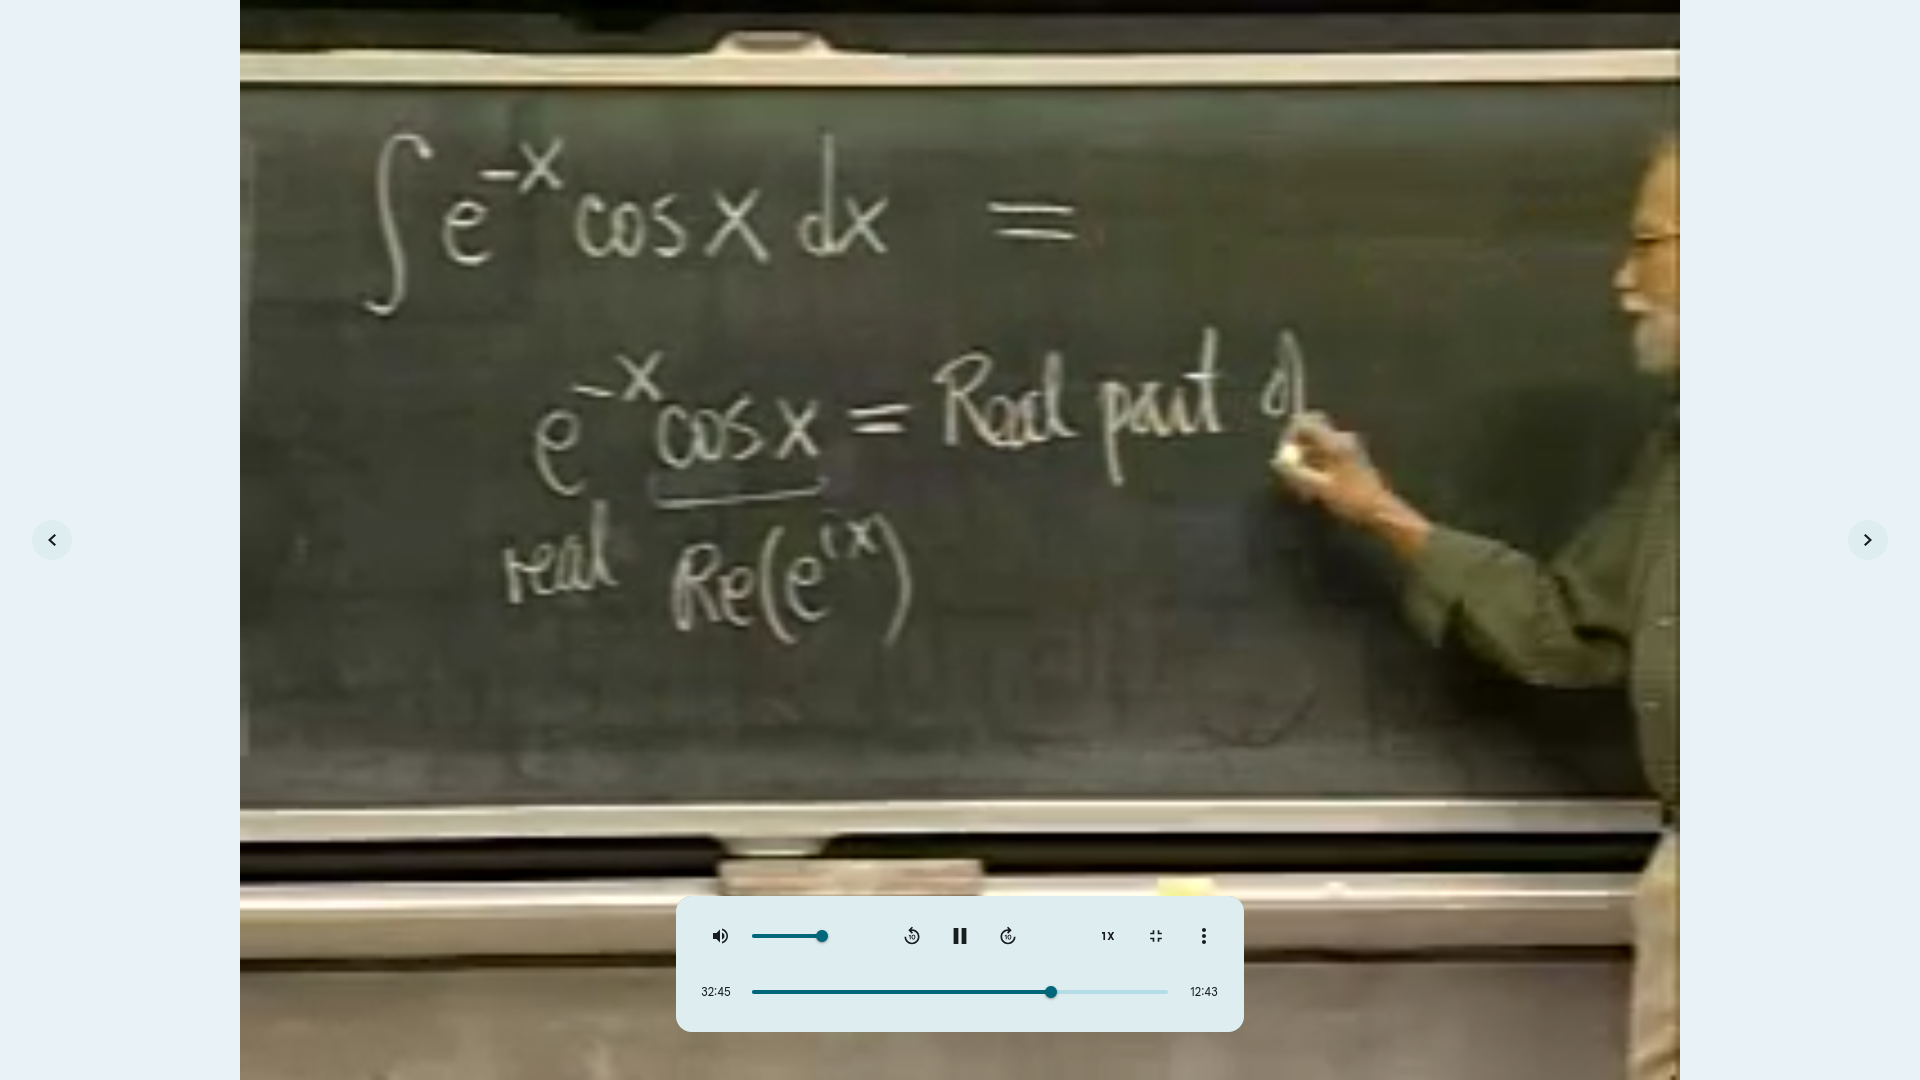 ∫ e^{-x} cos x dx =
e^{-x} cos x = Real part of
real Re(e^{ix})
1X
32:45 12:43